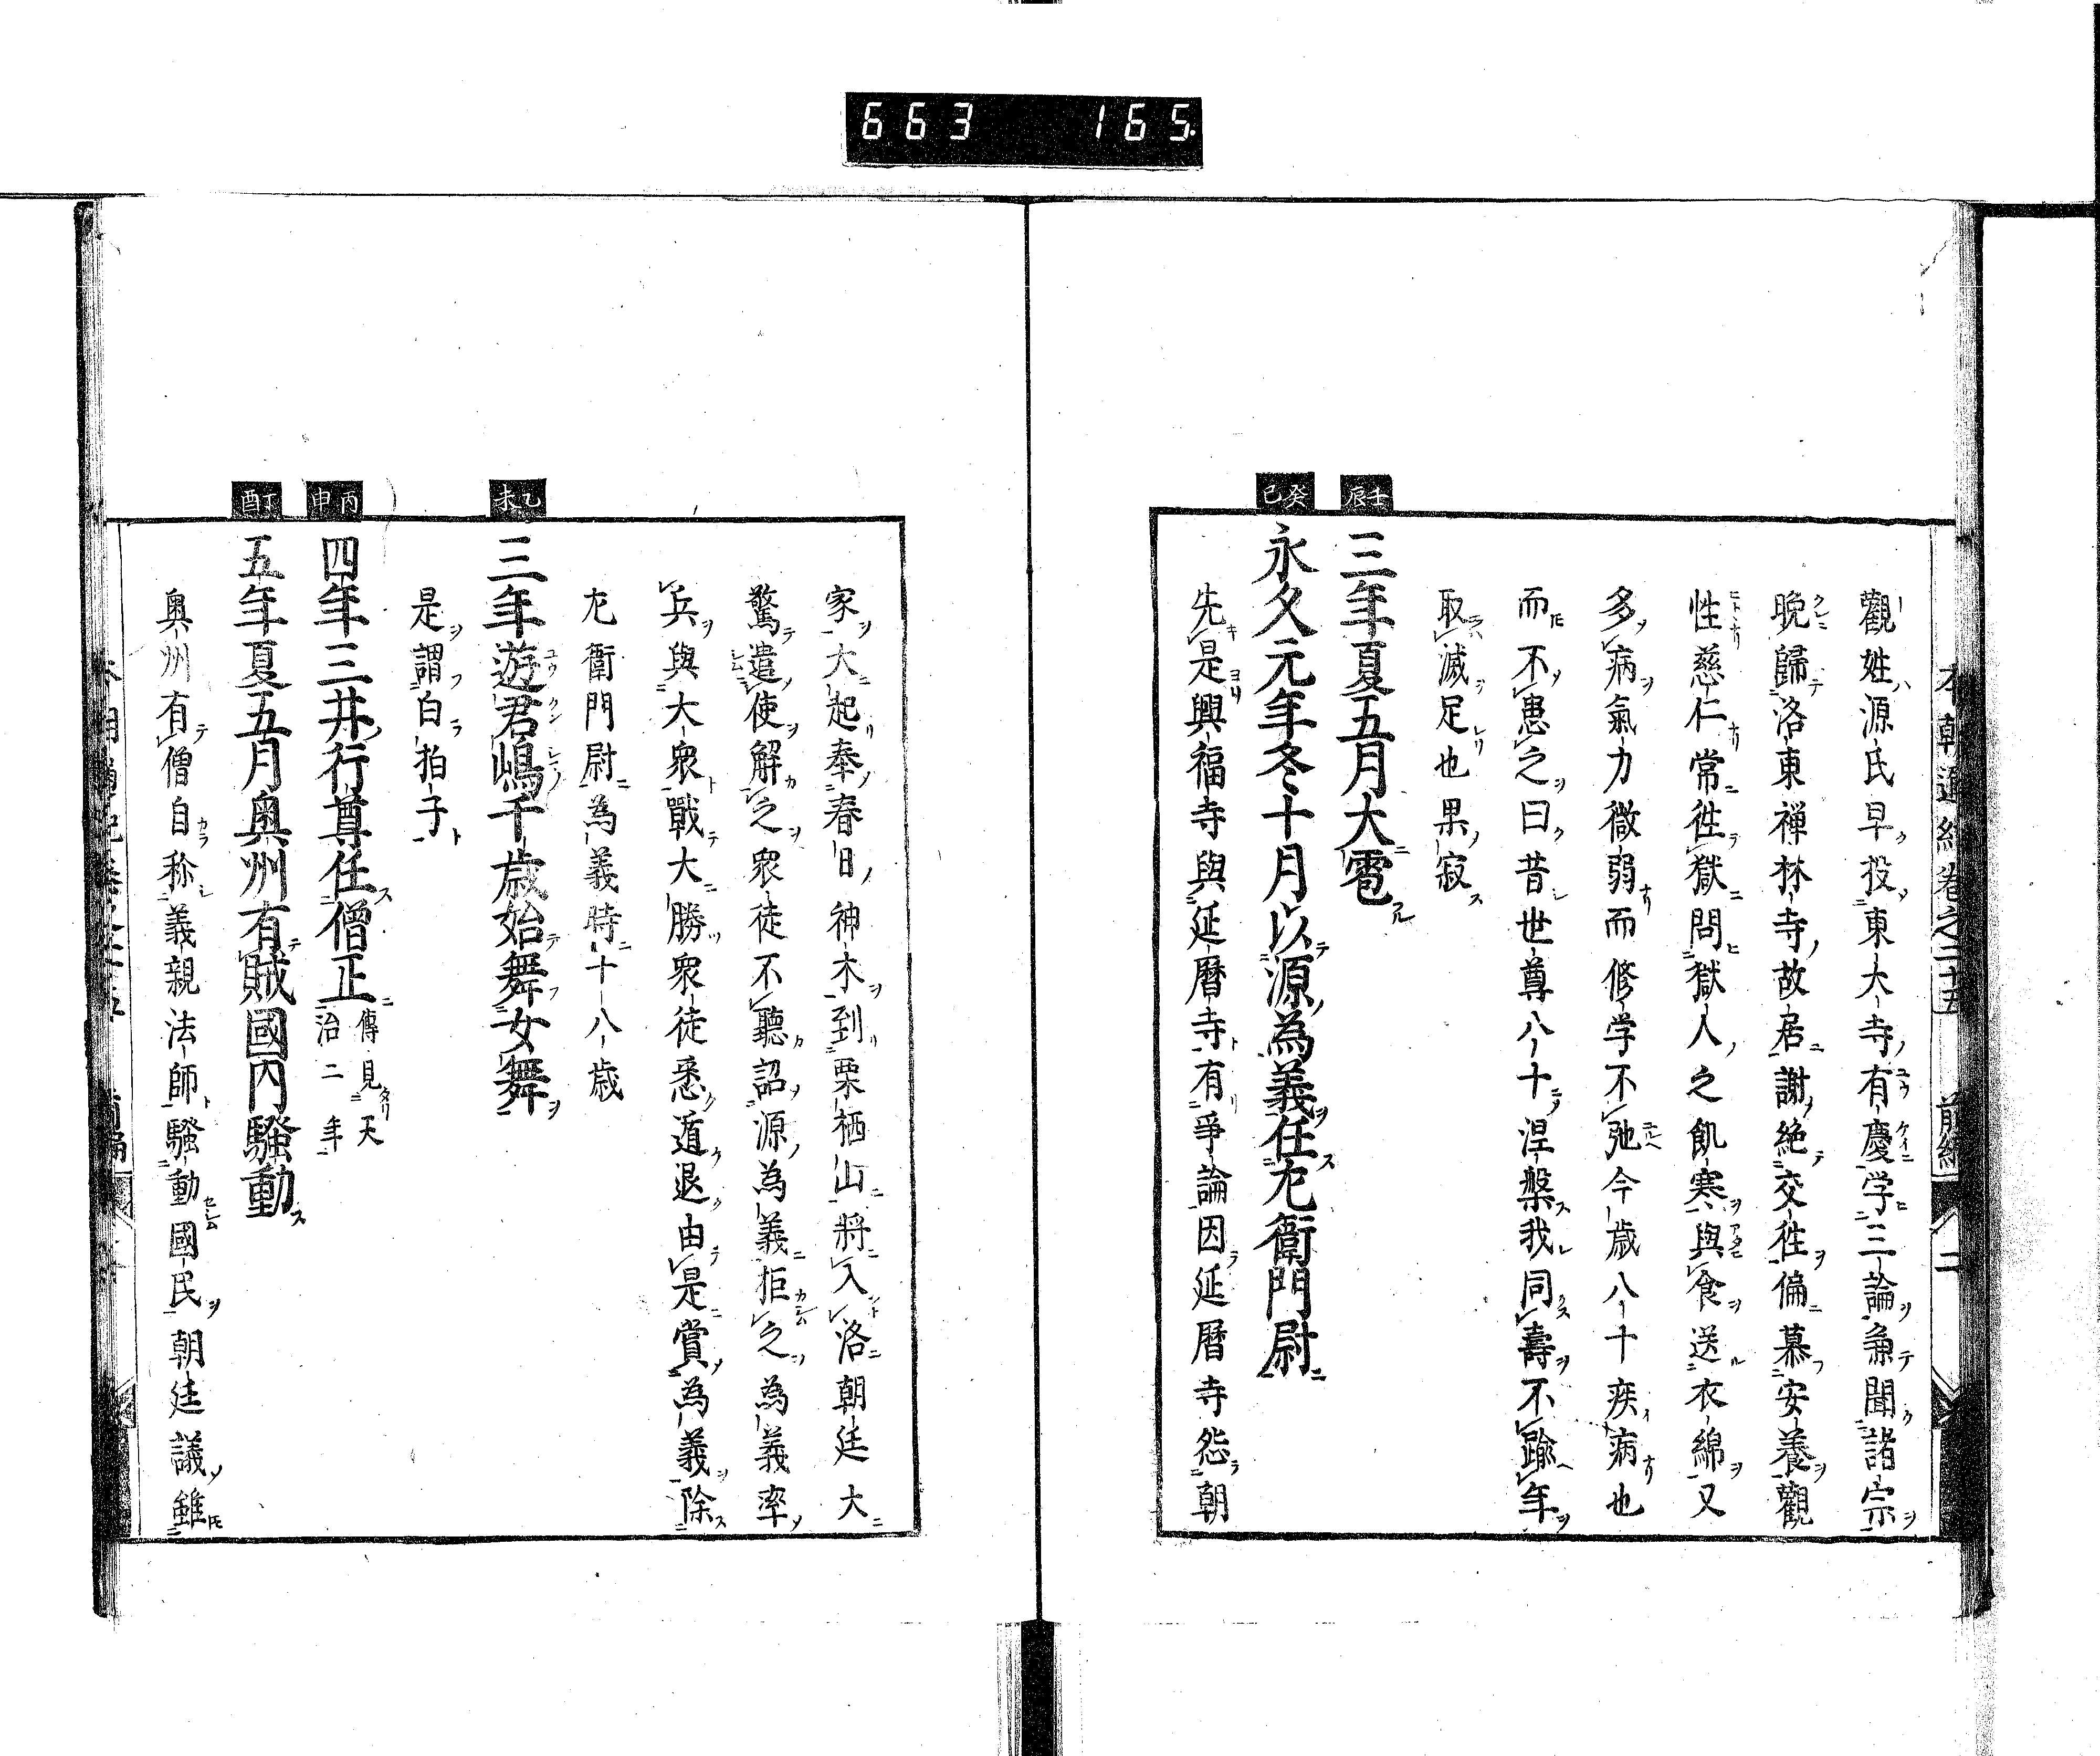 663 165
本朝通紀巻之二十五 前編 二
觀姓源氏早投東大寺有慶学三論兼聞諸宗
晩歸洛東禅林寺故居謝絶交徃偏慕安養觀
性慈仁常徃獄問獄人之飢寒與食送衣綿又
多病氣力微弱而修学不弛今歳八十疾病也
而不患之曰昔世尊八十涅槃我同壽不踰年
取滅足也果寂
壬辰
三年夏五月大雹
癸巳
永久元年冬十月以源為義任左衛門尉
先是興福寺與延暦寺有爭論因延暦寺怨朝
家大起奉春日神木到栗栖山將入洛朝廷大
驚遣使解之衆徒不聽詔源為義拒之為義率
兵與大衆戰大勝衆徒悉遁退由是賞為義除
左衛門尉為義時十八歳
乙未
三年遊君嶋千歳始舞女舞
是謂白拍子
丙申
四年三井行尊任僧正傳見天治二年
丁酉
五年夏五月奥州有賊國内騷動
奥州有僧自称義親法師騷動國民朝廷議雖